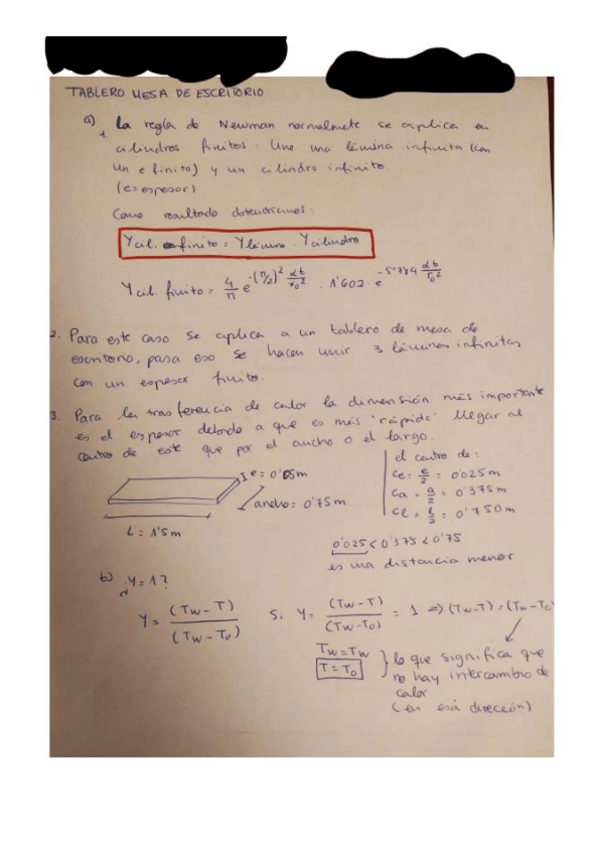 TABLERO MESA DE ESCRITORIO
a) 1 La regla de Newman normalmente se aplica en
cilindros finitos: Une una lámina infinita (con
un e finito) y un cilindro infinito.
(e=espesor)
Como resultado
Y cil. finito = Y lámina · Y cilindro
Y cil. finito = 4/π e^-(π/2)² αt/x₀² · 1'602 · e^-5'784 αt/r₀²
2. Para este caso se aplica a un tablero de mesa de
escritorio, para eso se hacen unir 3 láminas infinitas
con un espesor finito.
3. Para la trasferencia de calor la dimensión más importante
es el espesor debido a que es más 'rápido' llegar al
centro de este que por el ancho o el largo.
e = 0'05m
ancho = 0'75m
L = 1'5m
el centro de:
Ce = e/2 = 0'025m
Ca = a/2 = 0'375m
Cl = l/2 = 0'750m
0'025 < 0'375 < 0'75
es una distancia menor
b) ¿Y=1?
Y = (Tw-T)/(Tw-T₀) Si Y = (Tw-T)/(Tw-T₀) = 1 ⇒ (Tw-T) = (Tw-T₀)
Tw=Tw
T=T₀
lo que significa que
no hay intercambio de
calor
(en esa dirección)